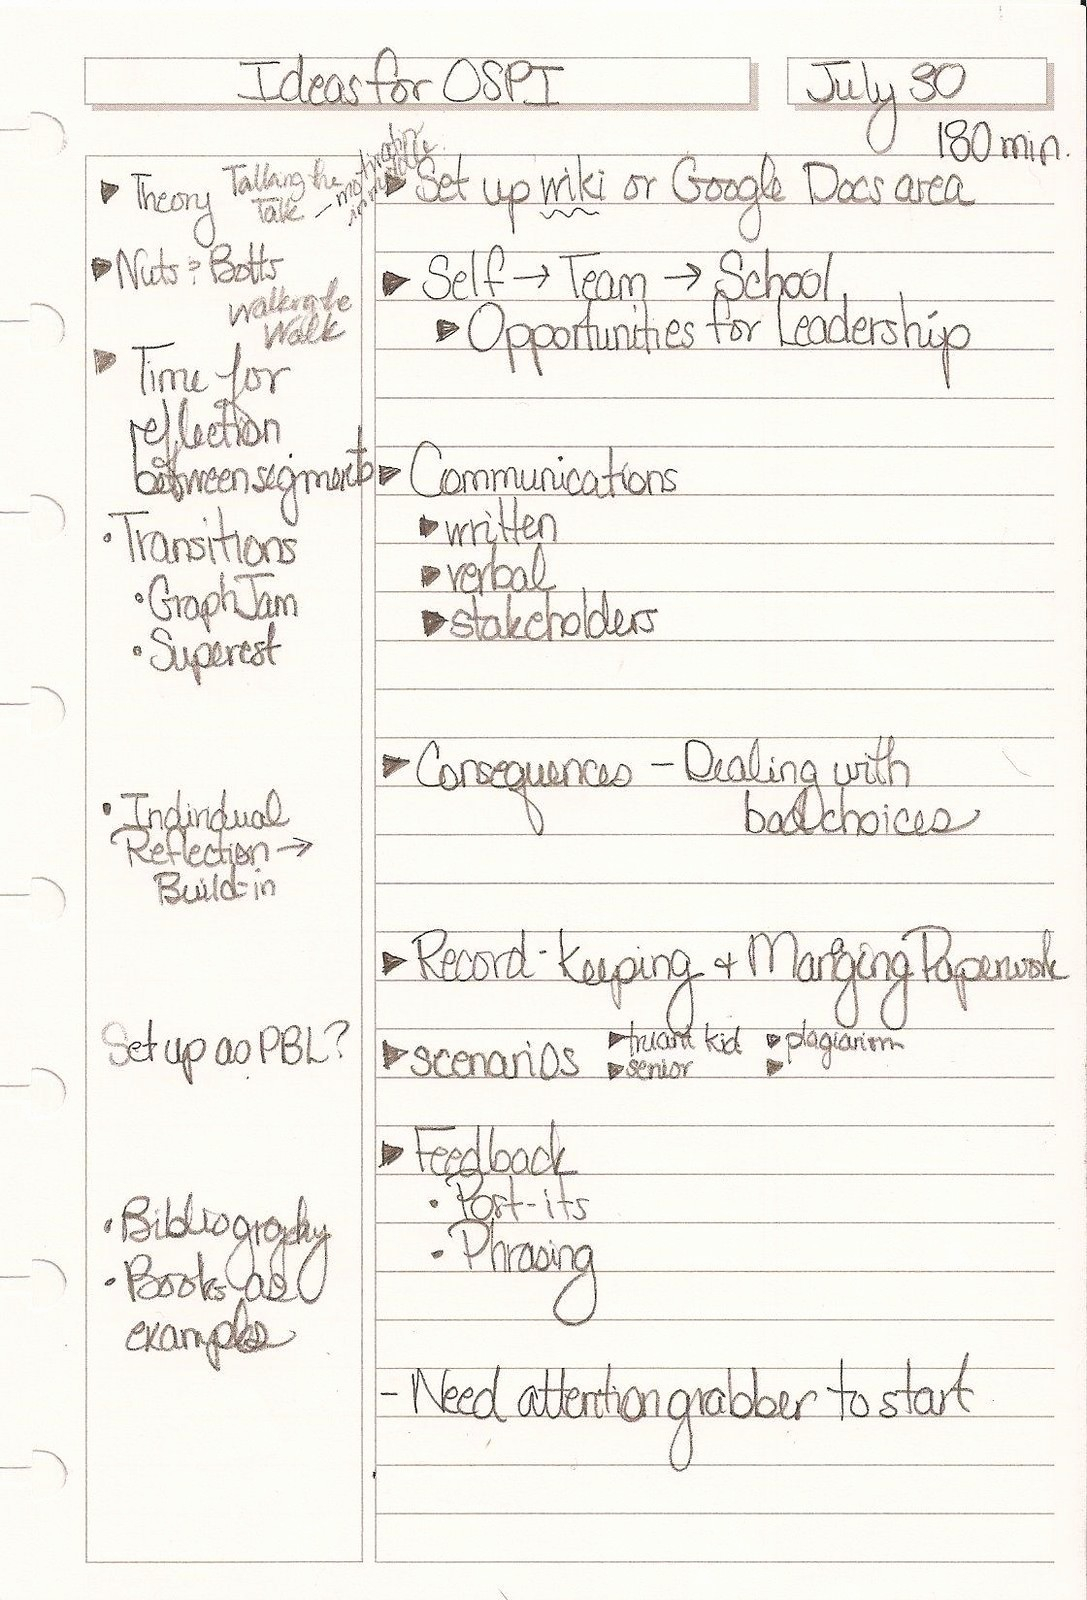 Ideas for OSPI
July 30
180 min.
▶ Theory
Talking the
Talk – motivation
in middle
▶ Nuts & Bolts
Walking the
Walk
▶ Time for
reflection
between segments
• Transitions
• GraphJam
• Superest
• Individual
Reflection →
Build-in
Set up as PBL?
• Bibliography
• Books as
examples
▶ Set up wiki or Google Docs area
▶ Self → Team → School
▶ Opportunities for Leadership
▶ Communications
▶ written
▶ verbal
▶ stakeholders
▶ Consequences – Dealing with
bad choices
▶ Record-keeping + Managing Paperwork
▶ scenarios ▶ truant kid ▶ plagiarism
▶ senior ▶
▶ Feedback
• Post-its
• Phrasing
- Need attention grabber to start